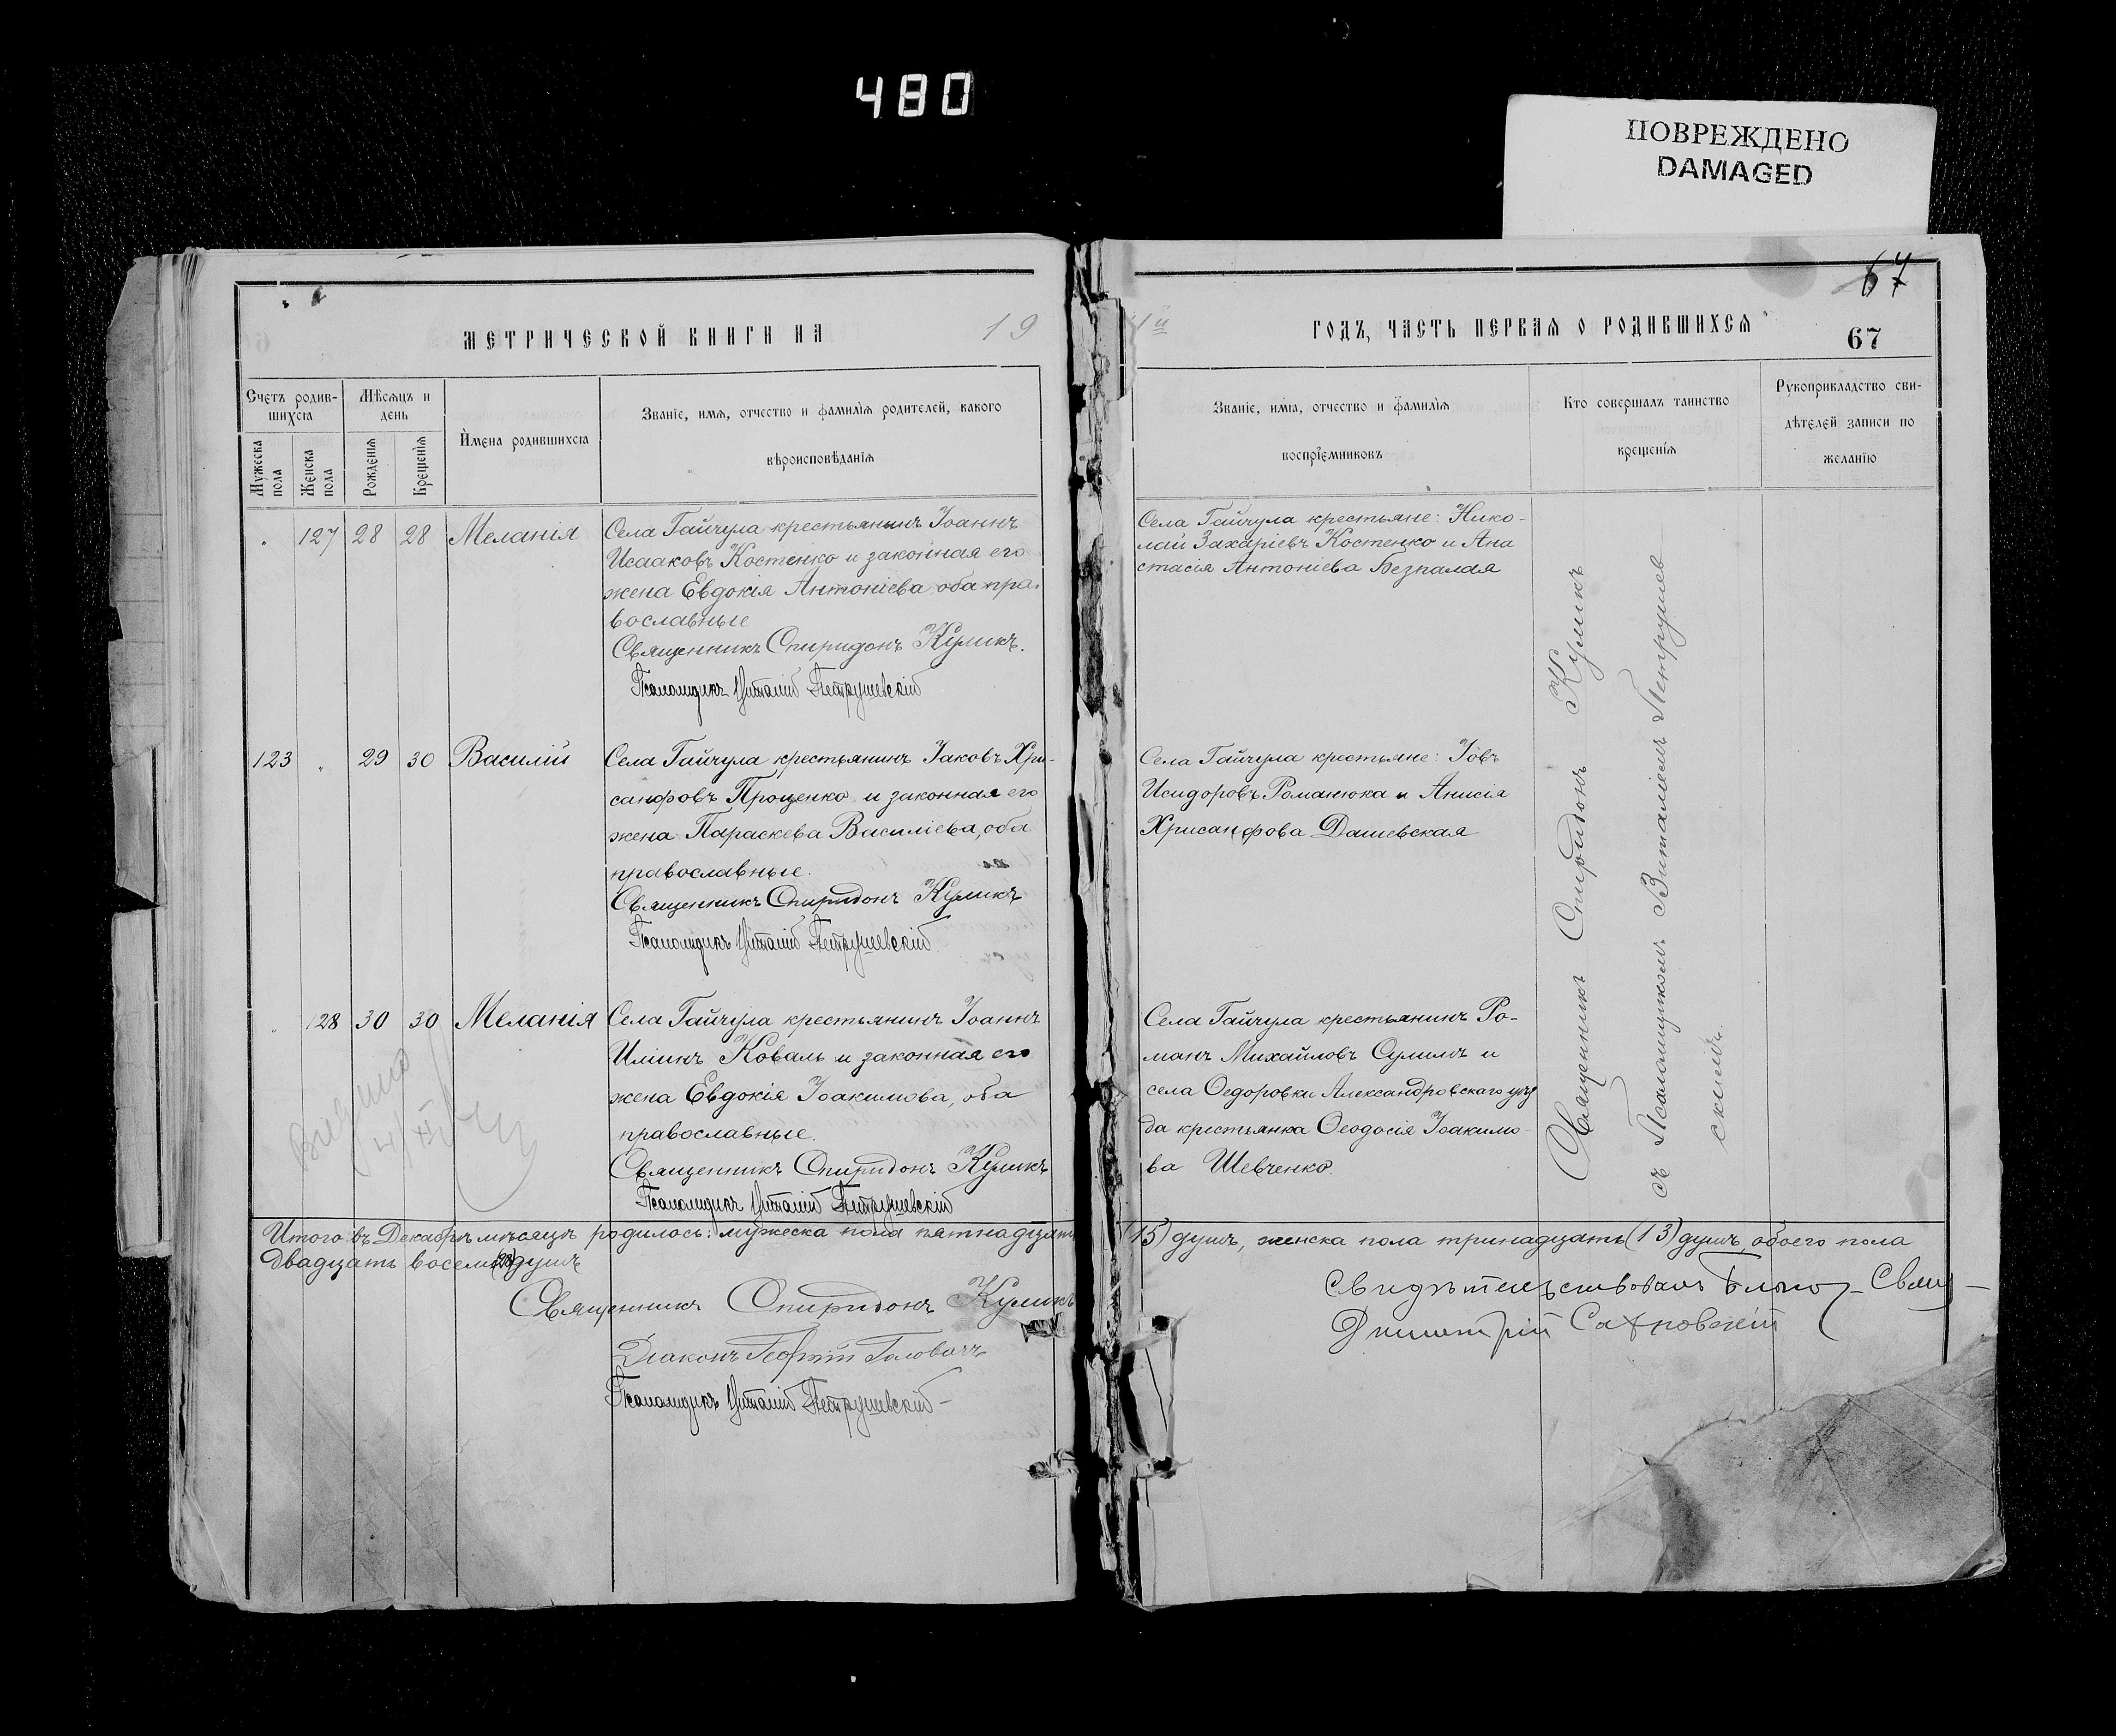 480
ПОВРЕЖДЕНО
DAMAGED
67
МЕТРИЧЕСКОЙ КНИГИ НА 19
Счетъ родив-
шихся
Мужеска пола
Женска пола
Мѣсяцъ и
день
Рожденія
Крещенія
Имена родившихся
Званіе, имя, отчество и фамилія родителей, какого
вѣроисповѣданія
127 28 28 Меланія
Села Гайчула крестьянинъ Іоаннъ
Исааковъ Костенко и законная его
жена Евдокія Антоніева, оба пра-
вославные
Священникъ Спиридонъ Куликъ.
Псаломщикъ Виталій Петрушевскій
123 29 30 Василій
Села Гайчула крестьянинъ Іаковъ Хри-
санфовъ Проценко и законная его
жена Параскева Василіева, оба
православные.
Священникъ Спиридонъ Куликъ
Псаломщикъ Виталій Петрушевскій
128 30 30 Меланія
Села Гайчула крестьянинъ Іоаннъ
Иліинъ Коваль и законная его
жена Евдокія Іоакимова, оба
православные.
Священникъ Спиридонъ Куликъ
Псаломщикъ Виталій Петрушевскій
Итого въ Декабрѣ мѣсяцѣ родилось: мужеска пола пятнадцать
двадцать восемь (28) душъ
Священникъ Спиридонъ Куликъ
Діаконъ Георгій Головачъ
Псаломщикъ Виталій Петрушевскій
ГОДЪ, ЧАСТЬ ПЕРВАЯ О РОДИВШИХСЯ
67
Званіе, имя, отчество и фамилія
воспріемниковъ
Кто совершалъ таинство
крещенія
Рукоприкладство сви-
дѣтелей записи по
желанію
Села Гайчула крестьяне: Нико-
лай Захаріевъ Костенко и Ана
стасія Антоніева Безпалая
Села Гайчула крестьяне: Іовъ
Исидоровъ Романюка и Анисія
Хрисанфова Дашевская
Села Гайчула крестьянинъ Ро-
манъ Михайловъ Сулимъ и
села Ѳедоровки Александровскаго уѣз
да крестьянка Ѳеодосія Іоакимо-
ва Шевченко.
Священникъ Спиридонъ Куликъ
съ Псаломщикомъ Виталіемъ Петрушев
скимъ.
(15) душъ, женска пола тринадцать (13) душъ, обоего пола
Свидѣтельствовалъ Благоч. Свящ-
Димитрій Сахновскій